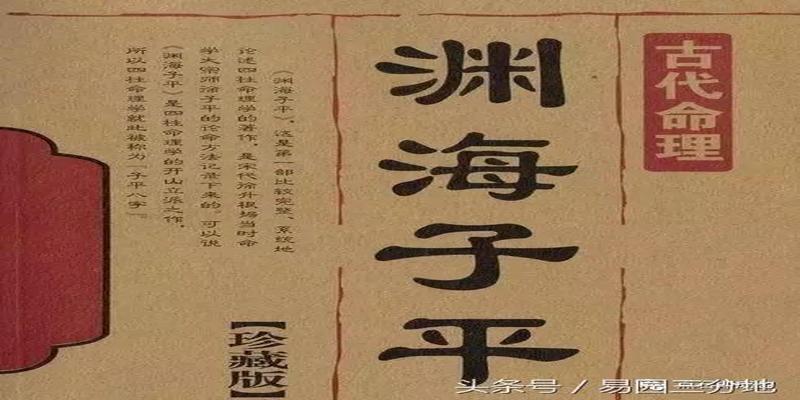 古代命理
渊海子平
《渊海子平》，这是第一部比较完整、系统地
论述四柱命理学的著作，是宋代徐升根据当时命
学大宗师徐子平的论命方法记录下来的。可以说
《渊海子平》是四柱命理学的开山立派之作，
所以四柱命理学就此被称为“子平八字”。
【珍藏版
头条号 / 易园三分地